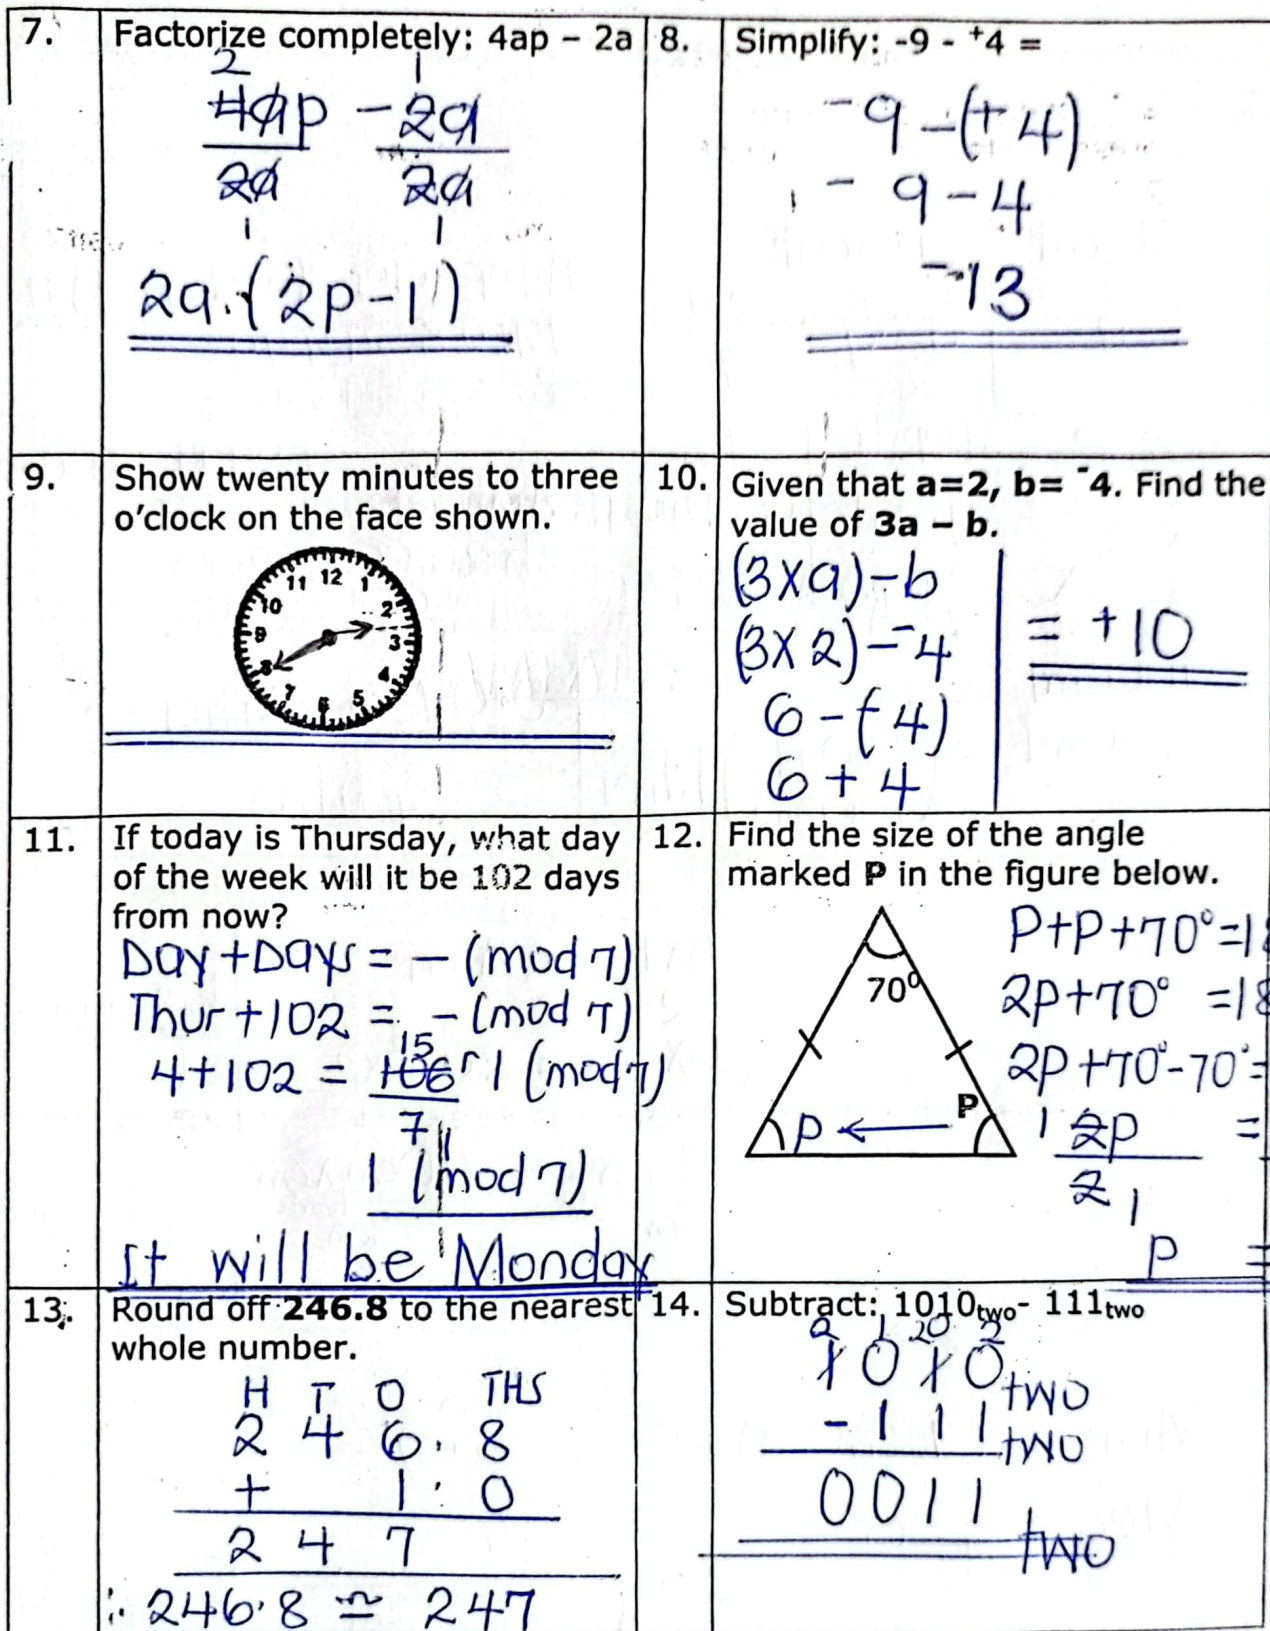 7. Factorize completely: 4ap – 2a
2 1
4ap – 2a
2a 2a
1 1
2a.(2p-1)
8. Simplify: -9 - ⁺4 =
⁻9 –(+4)
⁻9 – 4
⁻13
9. Show twenty minutes to three
o’clock on the face shown.
11 12 1
10 2
9 3
8 4
7 6 5
10. Given that a=2, b= ⁻4. Find the
value of 3a – b.
(3×a)–b
(3×2)–⁻4
6 –(⁻4)
6 + 4
= +10
11. If today is Thursday, what day
of the week will it be 102 days
from now?
Day + Days = – (mod 7)
Thur + 102 = – (mod 7)
15
4+102 = 106 r 1 (mod 7)
7 1
1 (mod 7)
It will be Monday
12. Find the size of the angle
marked P in the figure below.
70⁰
P
P
P+P+70°=18
2P+70° =18
2P+70°-70°=
1 2P =
2 1
P =
13. Round off 246.8 to the nearest
whole number.
H T O THS
2 4 6.8
+ 1.0
2 4 7
∴ 246.8 ≏ 247
14. Subtract: 1010two- 111two
0 1 20 2
1 0 1 0 two
- 1 1 1 two
0 0 1 1 two